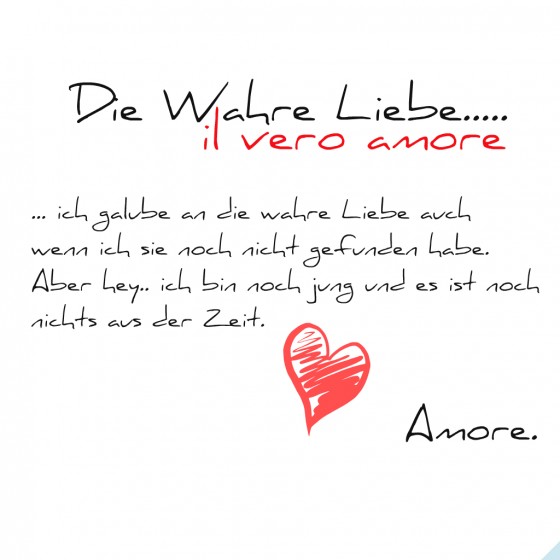 Die Wahre Liebe.....
il vero amore
... ich galube an die wahre Liebe auch
wenn ich sie noch nicht gefunden habe.
Aber hey.. ich bin noch jung und es ist noch
nichts aus der Zeit.
Amore.